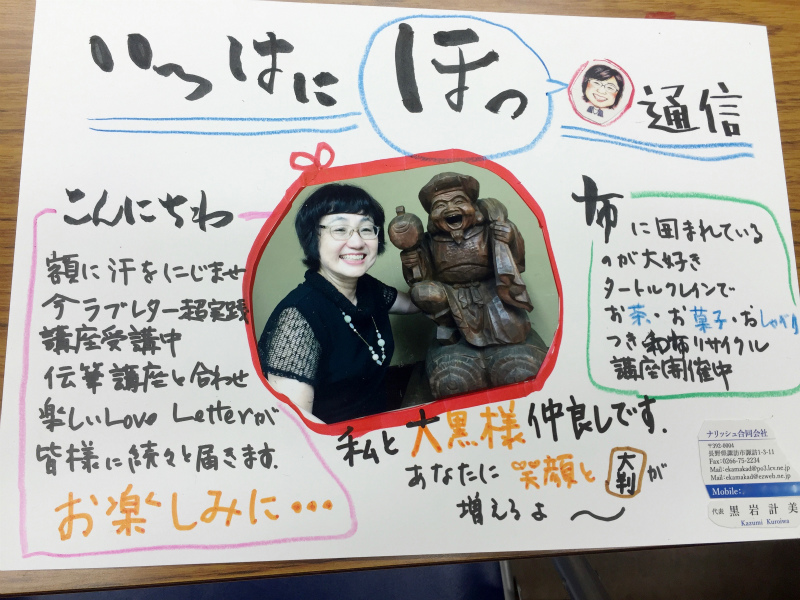 いろはに ほっ 通信
こんにちわ
額に汗をにじませ
今ラブレター超実践
講座受講中
伝筆講座と合わせ
楽しいLove Letterが
皆様に続々と届きます.
お楽しみに・・・
布に囲まれている
のが大好き
タートルクレインで
お茶・お菓子・おしゃべり
つき和布リサイクル
講座開催中
私と大黒様仲良しです.
あなたに笑顔と大判が
増えるよ〜
ナリッシュ合同会社
〒392-0004
長野県諏訪市諏訪1-3-11
Fax:0266-75-2234
Mail:ekamakad@po3.lcv.ne.jp
Mail:ekamakad@ezweb.ne.jp
Mobile:
代表 黒岩計美
Kazumi Kuroiwa